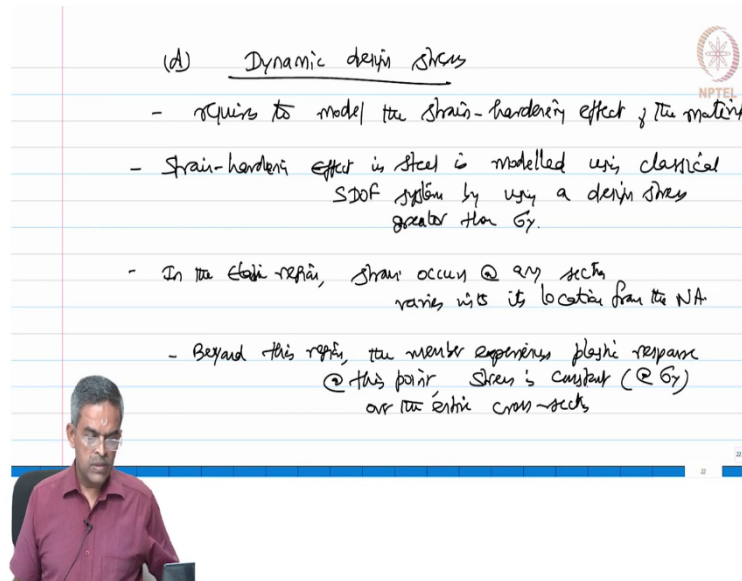 (d) Dynamic design stress
NPTEL
- requires to model the strain-hardening effect of the material
- Strain-hardening effect in steel is modelled using classical
SDOF system by using a design stress
greater than σy.
- In the elastic region, strain occurs @ any section
varies with its location from the NA.
- Beyond this region, the member experiences plastic response
@ this point, stress is constant (@ σy)
over the entire cross-section
22
22